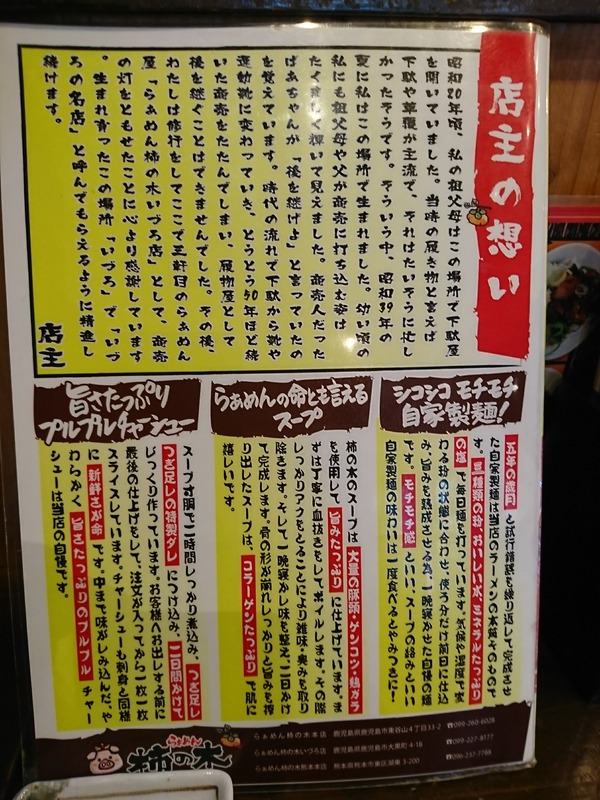 店主の想い
昭和20年頃、私の祖父母はこの場所で下駄屋
を開いていました。当時の履き物と言えば
下駄や草履が主流で、それはたいそうに忙し
かったそうです。そういう中、昭和39年の
夏に私はこの場所で生まれました。幼い頃の
私にも祖父母や父が商売に打ち込む姿は
たくましく輝いて見えました。商売人だった
ばあちゃんが「後を継げよ」と言っていたの
を覚えています。時代の流れで下駄から靴や
運動靴に変わっていき、とうとう50年ほど続
いた商売をたたんでしまい、履物屋として
後を継ぐことはできませんでした。その後、
わたしは修行をしてここで五軒目のらぁめん
屋「らぁめん柿の木いづろ店」として、商売
の灯をともせたことに心より感謝しています
。生まれ育ったこの場所「いづろ」で「いづ
ろの名店」と呼んでもらえるように精進し
続けます。
店主
シコシコ モチモチ
自家製麺!
五年の歳月と試行錯誤を繰り返して完成させ
た自家製麺は当店のラーメンの本筋そのもので
す。三種類の粉、おいしい水、ミネラルたっぷり
の塩で毎日麺を打っています。気温や湿度で変
わる粉の状態に合わせ、使う分だけ前日に仕込
み、旨みを熟成させる為、一晩寝かせた自慢の麺
です。モチモチ感といい、スープの絡みといい
自家製麺の味わいは一度食べるとやみつきに!
らぁめんの命とも言える
スープ
柿の木のスープは大量の豚頭・ゲンコツ・鶏ガラ
を使用して、旨みたっぷりに仕上げています。ま
ずは丁寧に血抜きをしてボイルします。その際
しっかりアクをとることにより雑味・臭みを取り
除きます。そして一晩寝かし味を整え、二日かけ
て完成します。骨の形が崩れしっかりと旨みを搾
り出したスープは、コラーゲンたっぷりで肌に
嬉しいです。
旨さたっぷり
プルプルチャーシュー
スープ寸胴で二時間しっかり煮込み、つぎ足し
つぎ足しの特製ダレにつけ込み、二日間かけて
じっくり作っています。お客様へお出しする前に
最後の仕上げをして、注文が入ってから一枚一枚
スライスしています。チャーシューも刺身と同様
に新鮮さが命です。中まで味がしみ込んだ、や
わらかく旨さたっぷりのプルプルチャー
シューは当店の自慢です。
らぁめん
柿の木
らぁめん柿の木本店 鹿児島県鹿児島市東谷山4丁目33-2 ☎099-260-6028
らぁめん柿の木いづろ店 鹿児島県鹿児島市大黒町4-16 ☎099-227-8177
らぁめん柿の木熊本本店 熊本県熊本市東区湖東3-200 ☎096-237-7766